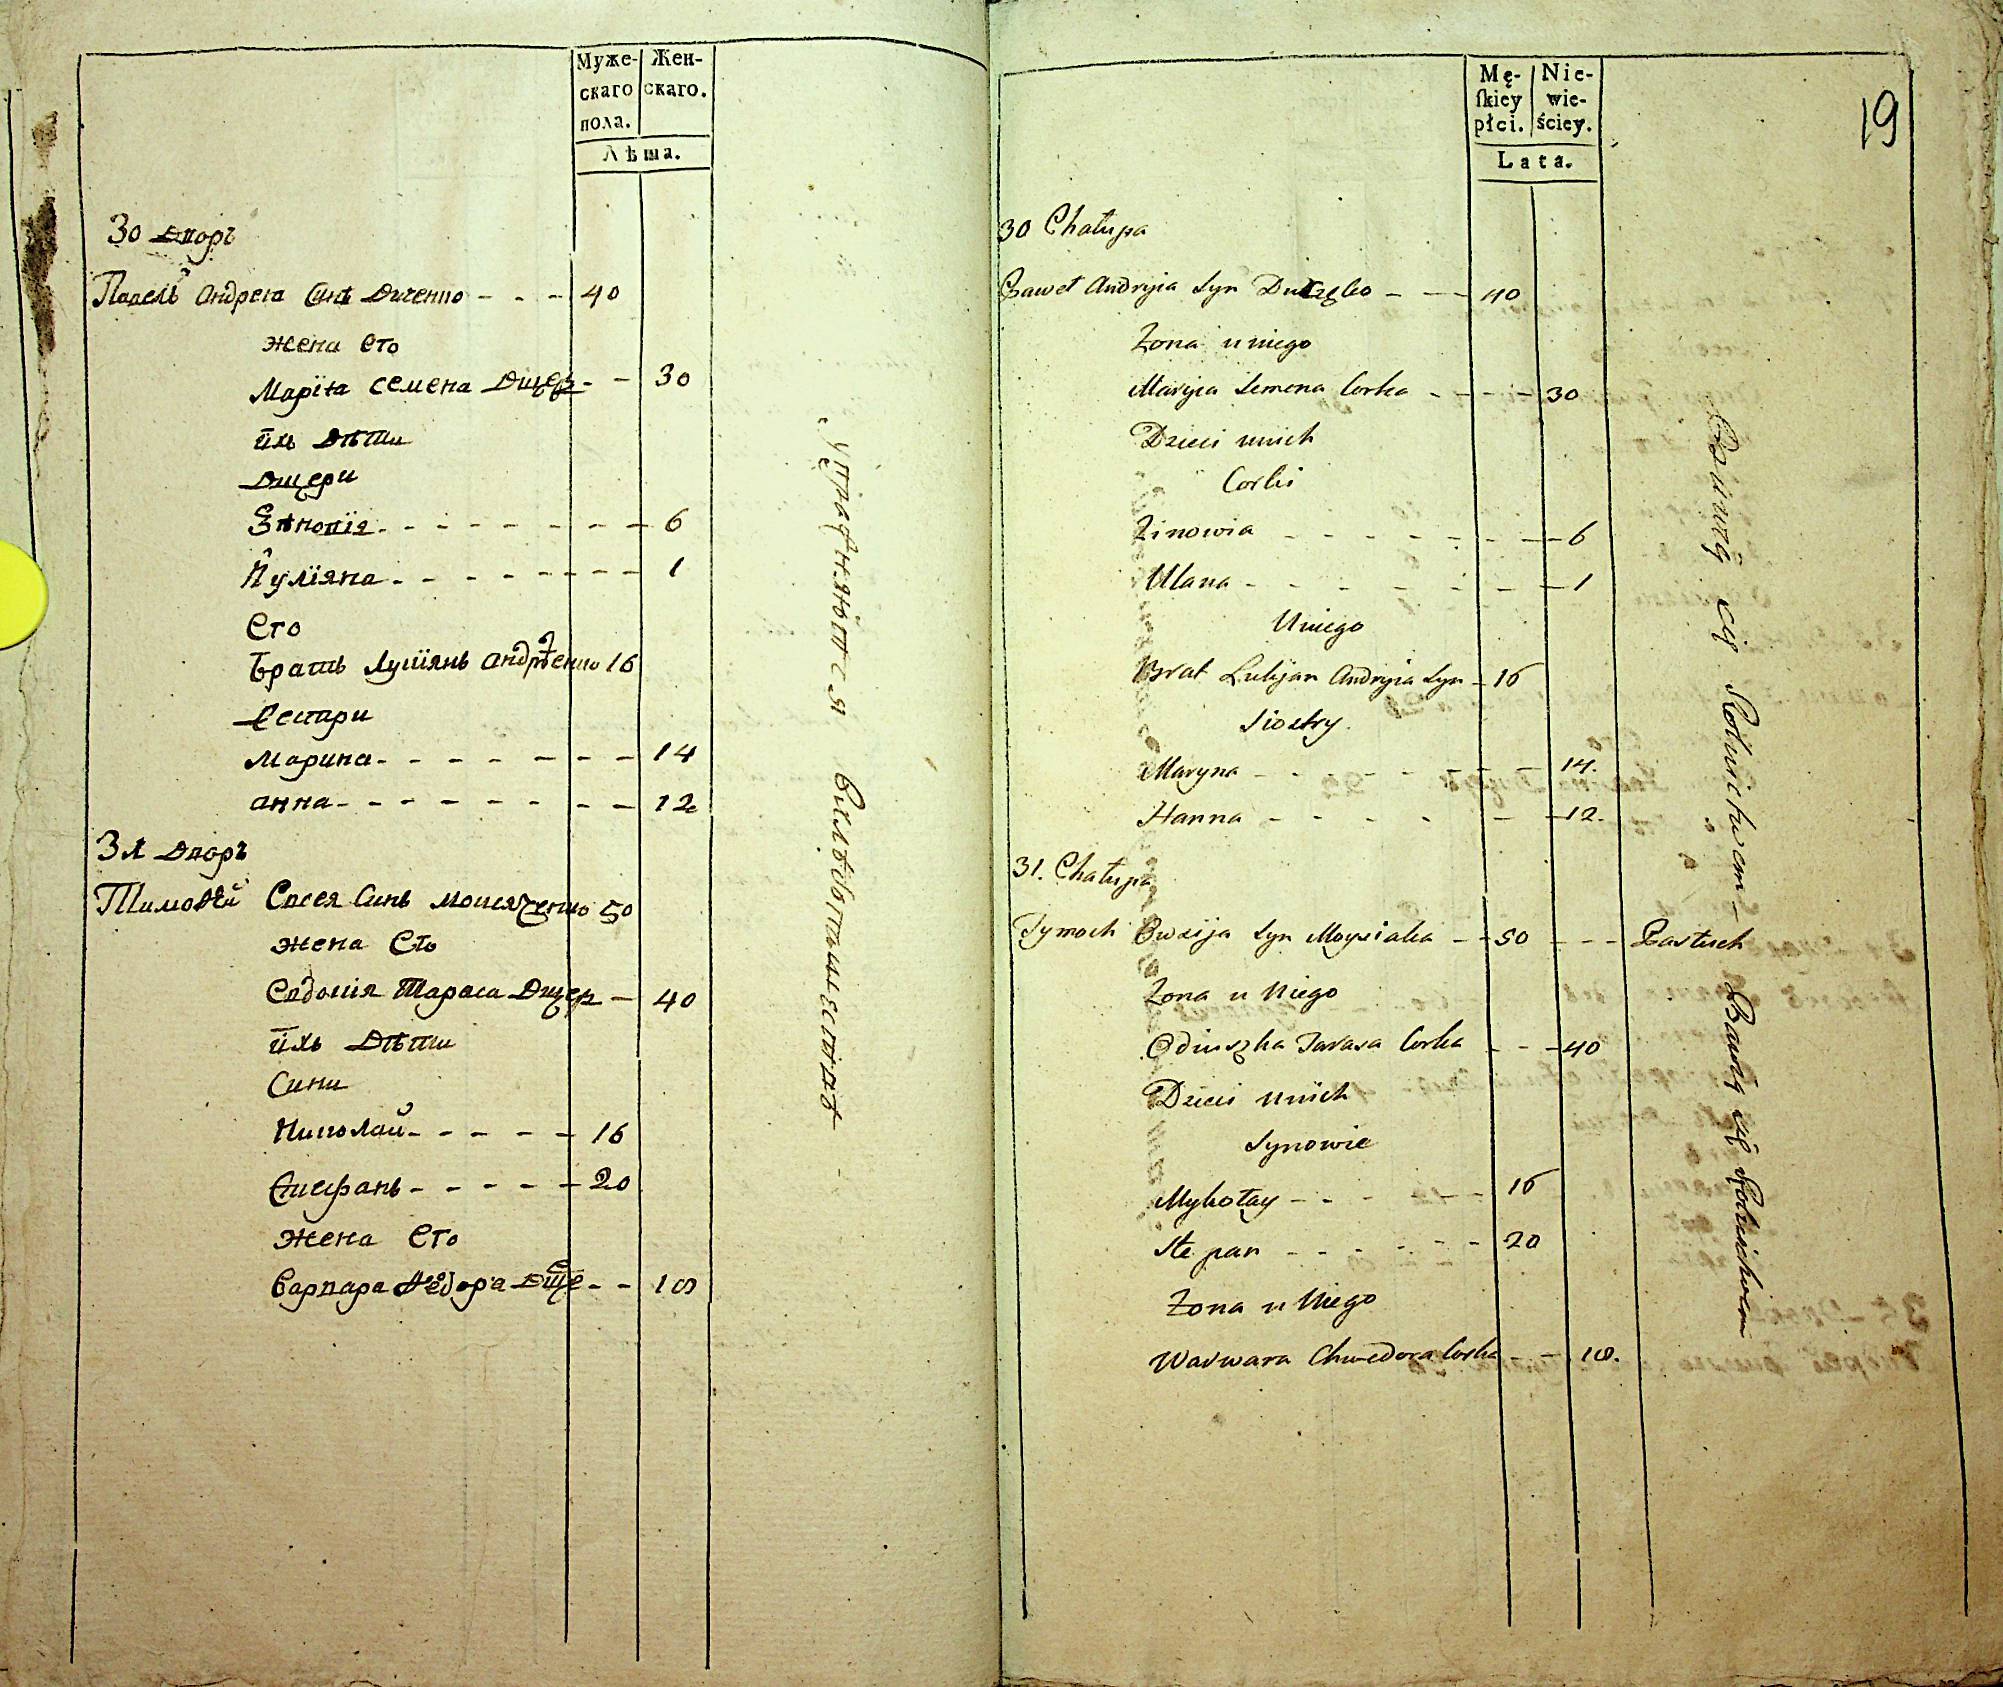 Муже-
скаго
пола.
Жен-
скаго.
Лѣта.
30 Дворъ
Павелъ Андрея Синъ Диченко - - - 40
жена Его
Марія Семена Дщер - - 30
ихъ Дѣти
Дщери
Зѣновія - - - - - - - - 6
Иуліяна - - - - - - - - 1
Его
Братъ Лукіянъ Андрѣенко 16
Сестри
Марина - - - - - - - 14
анна - - - - - - - - 12
31 Дворъ
Тимофей Евсея Синъ Мойсяченко 50
жена Его
Евдокія Тараса Дщер - 40
ихъ Дѣти
Сини
Николай - - - - - 16
Стефанъ - - - - - 20
жена Его
Варвара Федора Дще - - 18
Упражняются
19
Mę-
ſkiey
płci.
Nie-
wie-
ściey.
Lata.
30 Chałupa
Paweł Andryia Syn - - - 40
Żona u niego
Maryia Semena Corka - - - - 30
Dzieci unich
Corki
Zinowia - - - - - - - - 6
Ulana - - - - - - - - 1
Uniego
Brat Lukjan Andryia Syn - 16
Siostry.
Maryna - - - - - - - 14.
Hanna - - - - - - 12.
31. Chałupa
Tymoch Owsija Syn Moysiaka - - 50 - - - Pastuch
Żona u Niego
Odiuszka Tarasa Corka - - - 40
Dzieci unich
Synowie
Mykołay - - - - - 16
Stepan - - - - - - 20
Żona u Niego
Warwara Chwedora Corka - - 18.
Bawią się Rolnictwem - Bawią się Rolnictwem